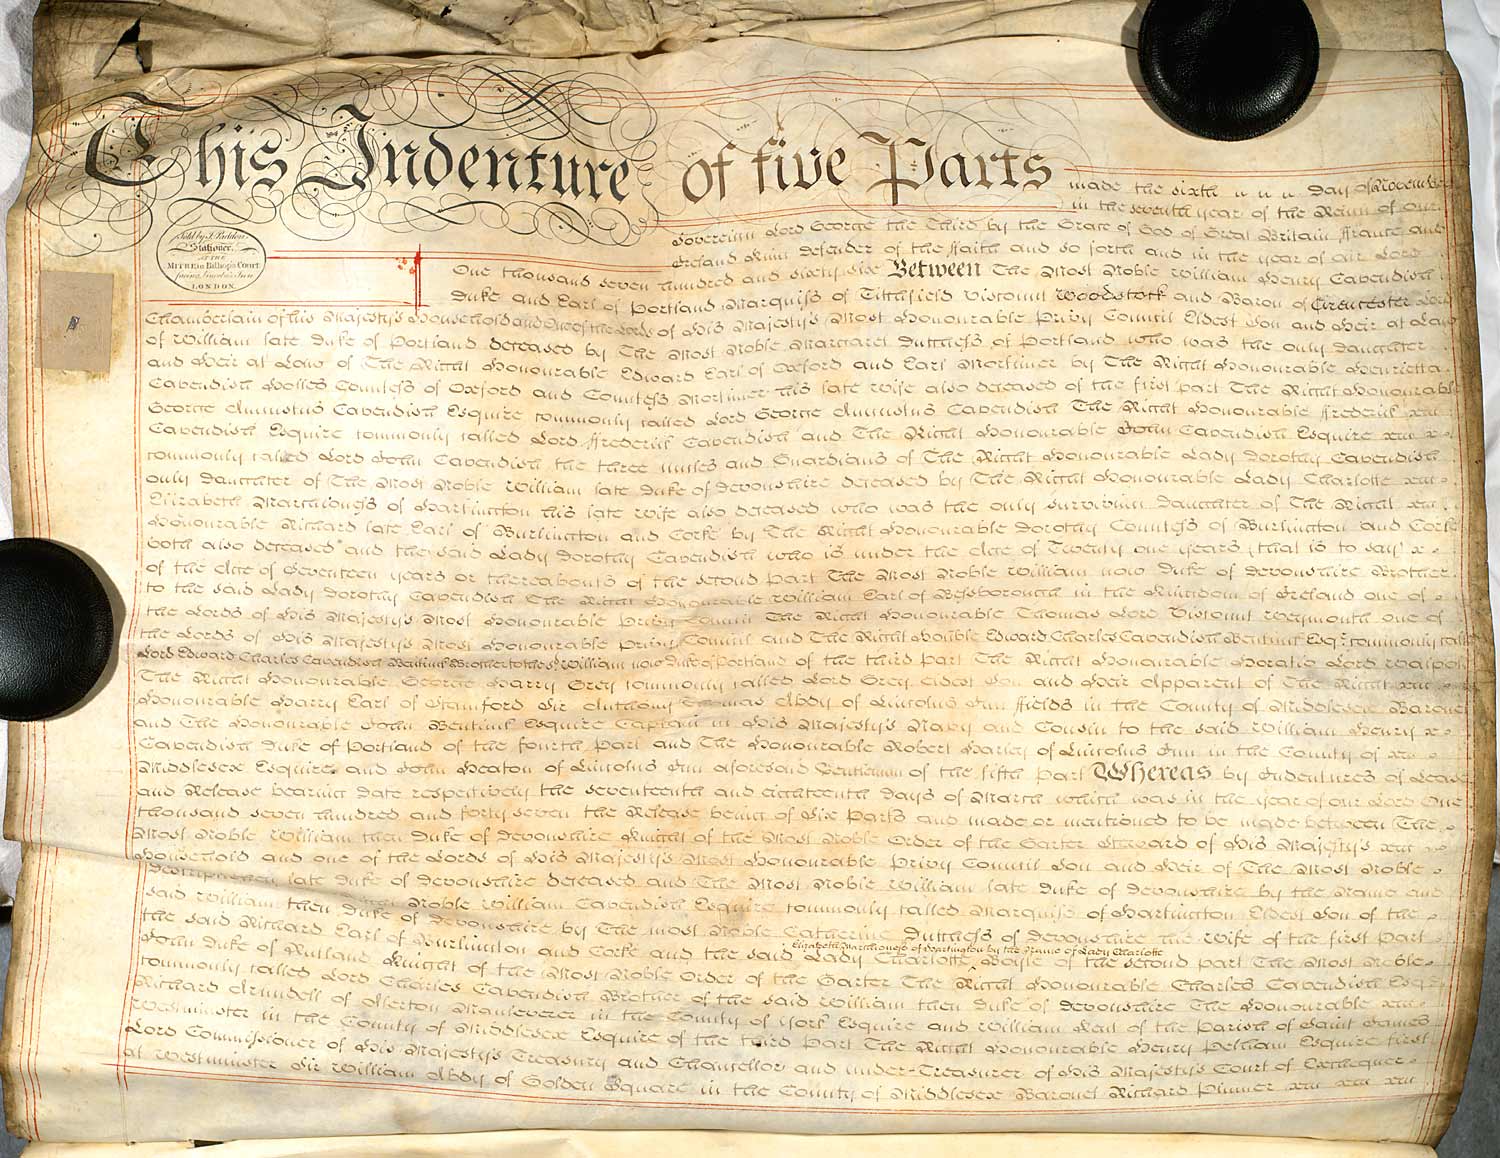 This Indenture of five Parts made the sixth Day of November
in the seventh year of the Reign of our
Sovereign Lord George the Third by the Grace of God of Great Britain ffrance and
Ireland King defender of the ffaith and so forth and in the year of our Lord
Sold by J. Paddon
Stationer.
AT THE
MITRE in Bishop's Court
facing Lincoln's Inn
LONDON.
One thousand seven hundred and sixty six Between The Most Noble William Henry Cavendish
Duke and Earl of Portland Marquiss of Titchfield Viscount Woodstock and Baron of Cirencester Lord
Chamberlain of his Majesty's Household and One of the Lords of His Majesty's Most Honourable Privy Council Eldest Son and Heir at Law
of William late Duke of Portland deceased by The Most Noble Margaret Dutchess of Portland who was the only daughter
and Heir at Law of The Right Honourable Edward Earl of Oxford and Earl Mortimer by The Right Honourable Henrietta
Cavendish Holles Countess of Oxford and Countess Mortimer his late Wife also deceased of the first part The Right Honourable
George Augustus Cavendish Esquire commonly called Lord George Augustus Cavendish The Right Honourable ffrederick
Cavendish Esquire commonly called Lord ffrederick Cavendish and The Right Honourable John Cavendish Esquire
commonly called Lord John Cavendish the three Uncles and Guardians of The Right Honourable Lady Dorothy Cavendish
only Daughter of The Most Noble William late Duke of Devonshire deceased by The Right Honourable Lady Charlotte
Elizabeth Marchioness of Hartington his late Wife also deceased who was the only surviving Daughter of The Right
Honourable Richard late Earl of Burlington and Corke by The Right Honourable Dorothy Countess of Burlington and Corke
both also deceased and the said Lady Dorothy Cavendish who is under the Age of Twenty one years (that is to say)
of the Age of Seventeen years or thereabouts of the second part The Most Noble William now Duke of Devonshire Brother
to the said Lady Dorothy Cavendish The Right Honourable William Earl of Besborough in the Kingdom of Ireland one of
the Lords of His Majesty's Most Honourable Privy Council The Right Honourable Thomas Lord Viscount Weymouth one of
the Lords of His Majesty's Most Honourable Privy Council and The Right Honble Edward Charles Cavendish Bentinck Esqr. commonly called
Lord Edward Charles Cavendish Bentinck Brother to the sd. William now Duke of Portland of the third part The Right Honourable Horatio Lord Walpole
The Right Honourable George Harry Grey commonly called Lord Grey Eldest Son and Heir Apparent of The Right
Honourable Harry Earl of Stamford Sir Anthony Thomas Abdy of Lincolns Inn ffields in the County of Middlesex Baronet
and The Honourable John Bentinck Esquire Captain in His Majesty's Navy and Cousin to the said William Henry
Cavendish Duke of Portland of the fourth Part and The Honourable Robert Harley of Lincolns Inn in the County of
Middlesex Esquire and John Heaton of Lincolns Inn aforesaid Gentleman of the fifth part Whereas by Indentures of Lease
and Release bearing date respectively the seventeenth and eighteenth days of March which was in the year of our Lord One
thousand seven hundred and forty seven the Release being of Six Parts and made or mentioned to be made between The
Most Noble William then Duke of Devonshire Knight of the Most Noble Order of the Garter Steward of His Majesty's
Household and one of the Lords of His Majesty's Most Honourable Privy Council Son and Heir of The Most Noble
late Duke of Devonshire deceased and The Most Noble William late Duke of Devonshire by the Name and
Description Noble William Cavendish Esquire commonly called Marquiss of Hartington Eldest Son of the
said William then Duke of Devonshire by The most Noble Catherine Dutchess of Devonshire his Wife of the first Part
the said Richard Earl of Burlington and Corke and the said Lady Charlotte Elizabeth Marchioness of Hartington by the Name of Lady Charlotte Boyle of the second part The Most Noble
John Duke of Rutland Knight of the Most Noble Order of the Garter The Right Honourable Charles Cavendish Esqr.
commonly called Lord Charles Cavendish Brother of the said William then Duke of Devonshire The Honourable
Richard Arundell of Allerton Mauleverer in the County of York Esquire and William Kent of the Parish of Saint James
Westminster in the County of Middlesex Esquire of the third Part The Right Honourable Henry Pelham Esquire first
Lord Commissioner of His Majesty's Treasury and Chancellor and under-Treasurer of His Majesty's Court of Exchequer
at Westminster Sir William Abdy of Golden Square in the County of Middlesex Baronet Richard Pinner